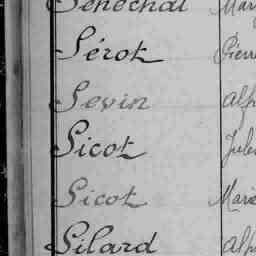 Sénéchal Mar
Sérot Pierre
Sevin Alp
Sicot Jules
Sicot Marie
Silard Alp